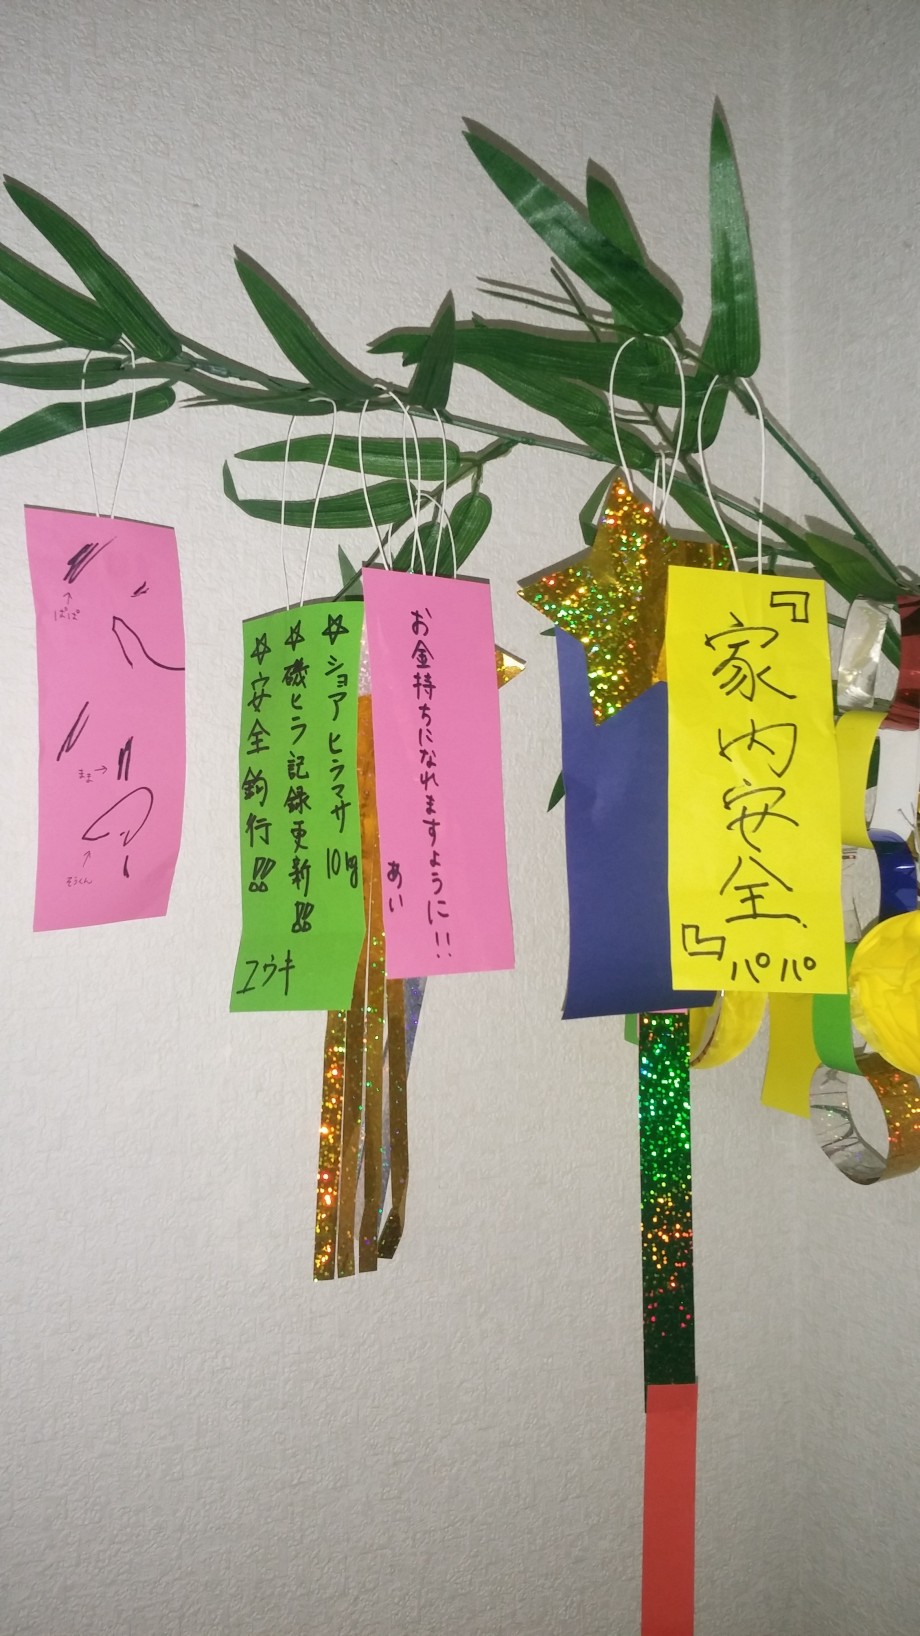 ぱぱ
まま→
そうくん
☆ショアヒラマサ 10kg
☆磯ヒラ記録更新!!
☆安全釣行!!
ユウキ
お金持ちになれますように!!
あい
『家内安全』
パパ